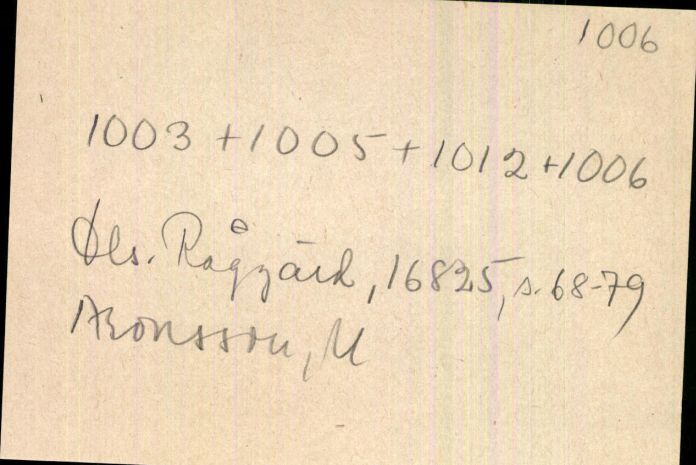 1006
1003 + 1005 + 1012 + 1006
Dls. Råggärd, 16825, s. 68-79
Aronsson, M